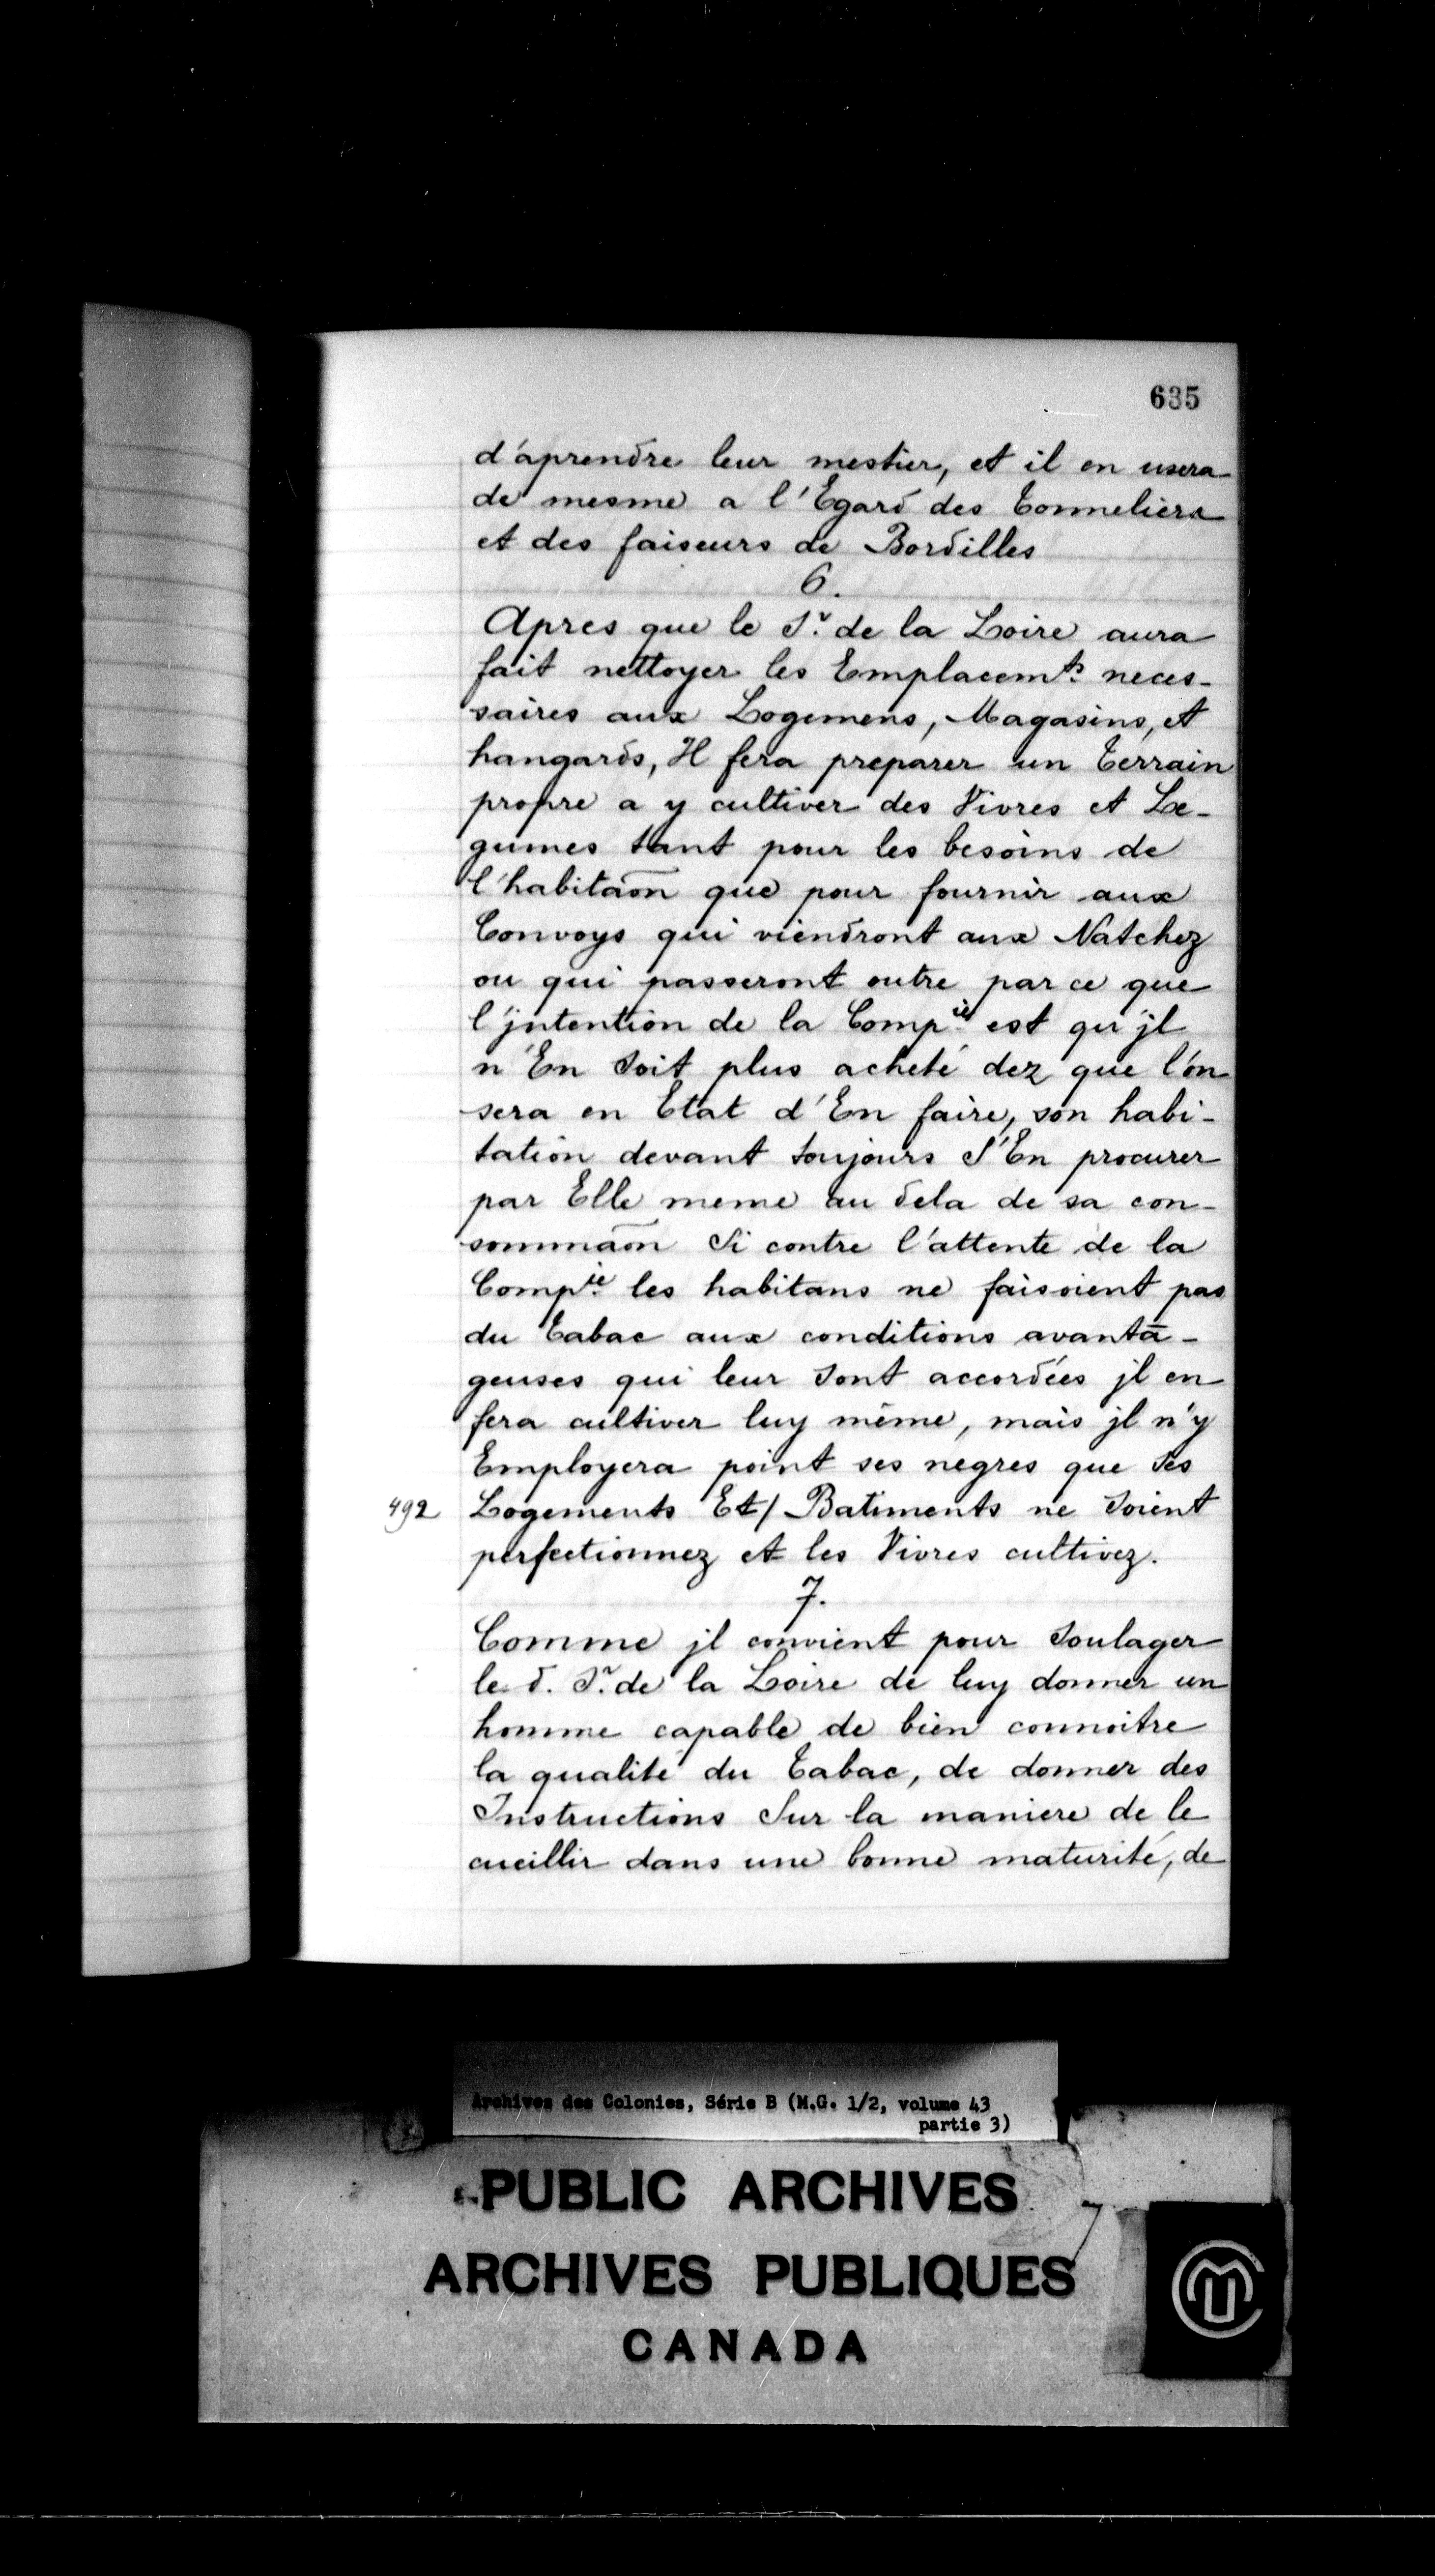 635
d'aprendre leur mestier, et il en usera
de mesme a l'Egard des Tonneliers
et des faiseurs de Bordilles
6.
Apres que le Sr. de la Loire aura
fait nettoyer les Emplacemts. neces-
saires aux Logemens, Magasins, et
hangards, Il fera preparer un Terrain
propre a y cultiver des Vivres et Le-
gumes tant pour les besoins de
l'habitaõn que pour fournir aux
Convoys qui viendront aux Natchez
ou qui passeront outre par ce que
l'jntention de la Compie. est qu'jl
n'En soit plus acheté dez que l'on
sera en Etat d'En faire, son habi-
tation devant toujours S'En procurer
par Elle meme au dela de sa con-
sommaõn Si contre l'attente de la
Compie. les habitans ne faisoient pas
du Tabac aux conditions avanta-
geuses qui leur sont accordées jl en
fera cultiver luy même, mais jl n'y
Employera point ses negres que ses
492 Logements Et/ Batiments ne soient
perfectionnez et les Vivres cultivez.
7.
Comme jl convient pour soulager
le d. Sr. de la Loire de luy donner un
homme capable de bien connoitre
la qualité du Tabac, de donner des
Instructions Sur la maniere de le
cueillir dans une bonne maturité, de
Archives des Colonies, Série B (M.G. 1/2, volume 43
partie 3)
PUBLIC ARCHIVES
ARCHIVES PUBLIQUES
CANADA